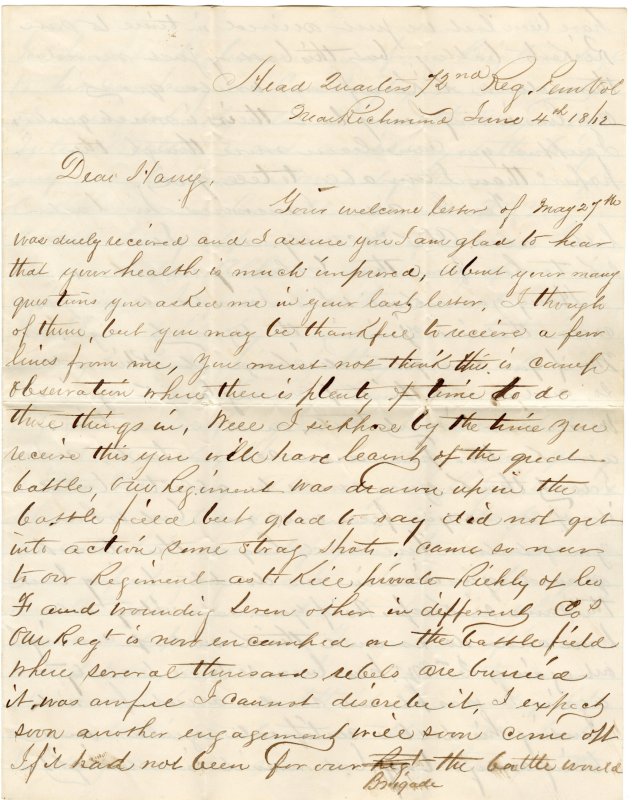 Head Quarters 72nd Reg. Penn Vol
Near Richmond June 4th 1862
Dear Harry,
Your welcome letter of May 27th
was duely received and I assure you I am glad to hear
that your health is much improved, About your many
questions you asked me in your last letter, I though
of them, but you may be thankful to receive a few
lines from me, you must not think this is camp
observation where there is plenty of time to do
those things in, Well I suppose by the time you
receive this you will have learnt of the great
battle, Our Regiment was drawn up in the
battle field but glad to say did not get
into action some strag shots, came so near
to our Regiment as to kill private Richly of Co
F and wounding seven other in differently Cos
Our Regt is now encamped on the battle field
where several thousand rebels are buried
it was awful I cannot discribe it, I expect
soon another engagement will soon come off
If it had not been for our Regt the battle would
Brigade